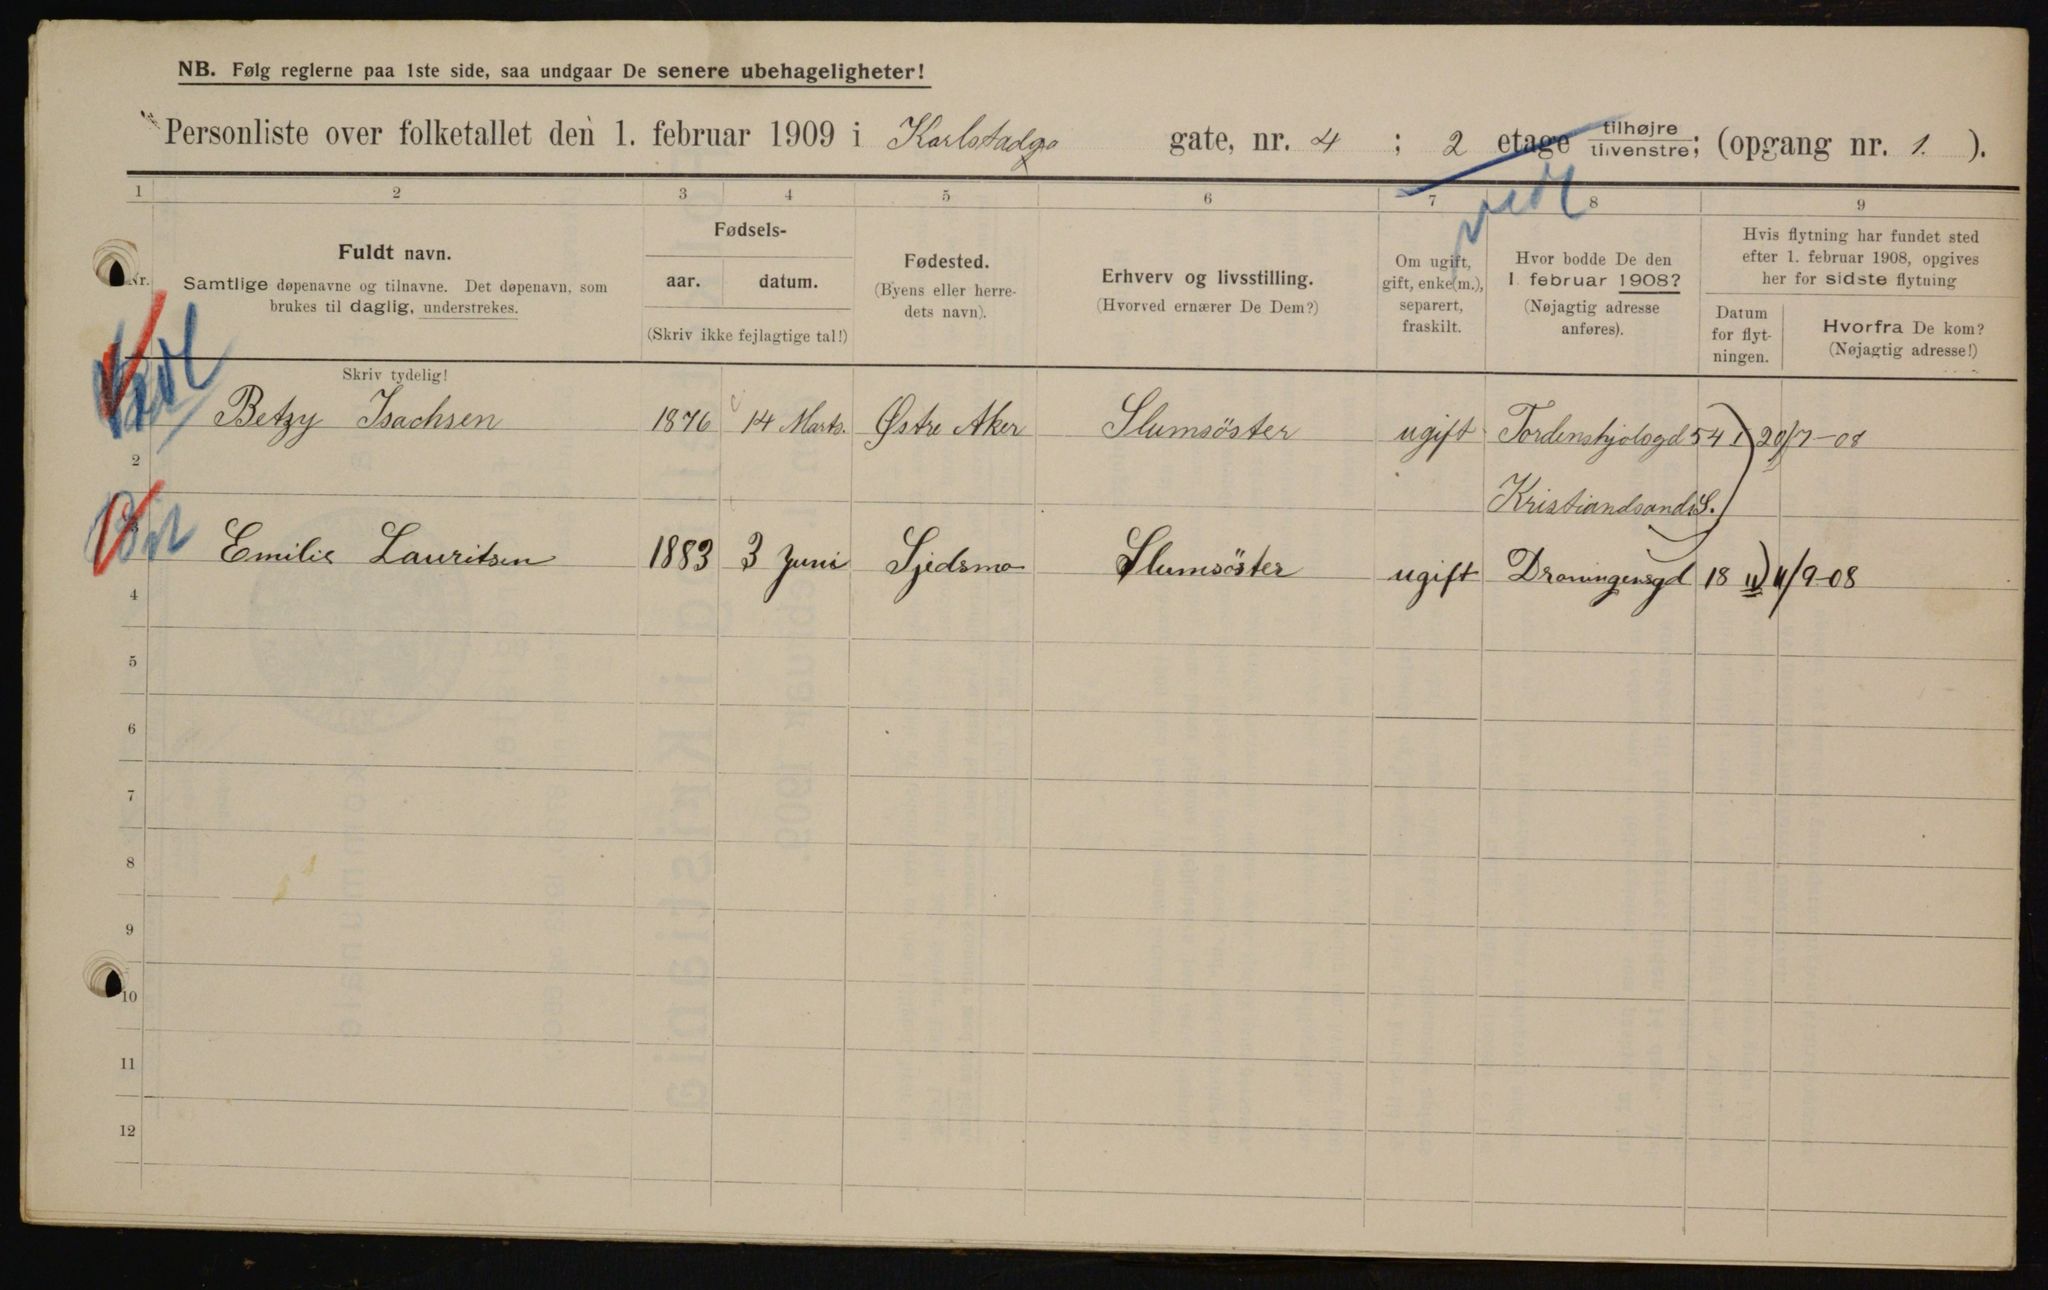 NB. Følg reglerne paa 1ste side, saa undgaar De senere ubehageligheter!
Personliste over folketallet den 1. februar 1909 i Karlstadga gate, nr. 4 ; 2 etage tilhøjre tilvenstre; (opgang nr. 1. ).
1 2 3 4 5 6 7 8 9
Nr.
Fuldt navn.
Samtlige døpenavne og tilnavne. Det døpenavn, som
brukes til daglig, understrekes.
Fødsels-
aar. datum.
(Skriv ikke fejlagtige tal!)
Fødested.
(Byens eller herre-
dets navn).
Erhverv og livsstilling.
(Hvorved ernærer De Dem?)
Om ugift,
gift, enke(m.),
separert,
fraskilt.
Hvor bodde De den
1. februar 1908?
(Nøjagtig adresse
anføres).
Hvis flytning har fundet sted
efter 1. februar 1908, opgives
her for sidste flytning
Datum
for flyt-
ningen.
Hvorfra De kom?
(Nøjagtig adresse!)
Skriv tydelig!
Betzy Isachsen 1876 14 Marts. Østre Aker Slumsöster ugift Tordenskjolsgd 54 I 20/7-08
2
Kristiandsand S.
3 Emilie Lauritsen 1883 3 Juni Sjedsmo Slumsöster ugift Droningensgd 18 II 11/9-08
4
5
6
7
8
9
10
11
12